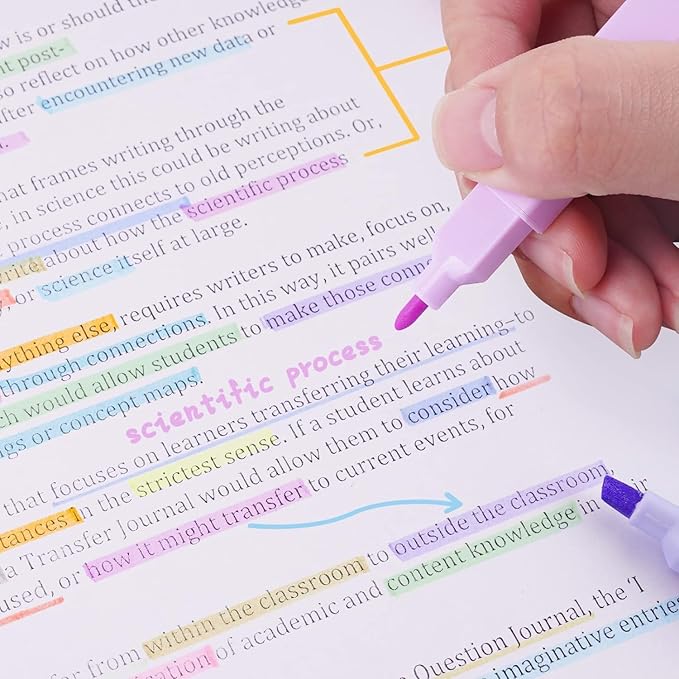 w is or should the
nt post-
so reflect on how other knowledge
after encountering new data or
hat frames writing through the
e, in science this could be writing about
process connects to old perceptions. Or,
write about how the scientific process
y, or science itself at large.
ything else, requires writers to make, focus on,
through connections. In this way, it pairs well
ch would allow students to make those conne
ngs or concept maps.
scientific process
that focuses on learners transferring their learning to
tances in the strictest sense. If a student learns about
a Transfer Journal would allow them to consider how
used, or how it might transfer to current events, for
outside the classroom,
far from within the classroom to content knowledge in their
ration of academic and
e Question Journal, the 'I
imaginative entries